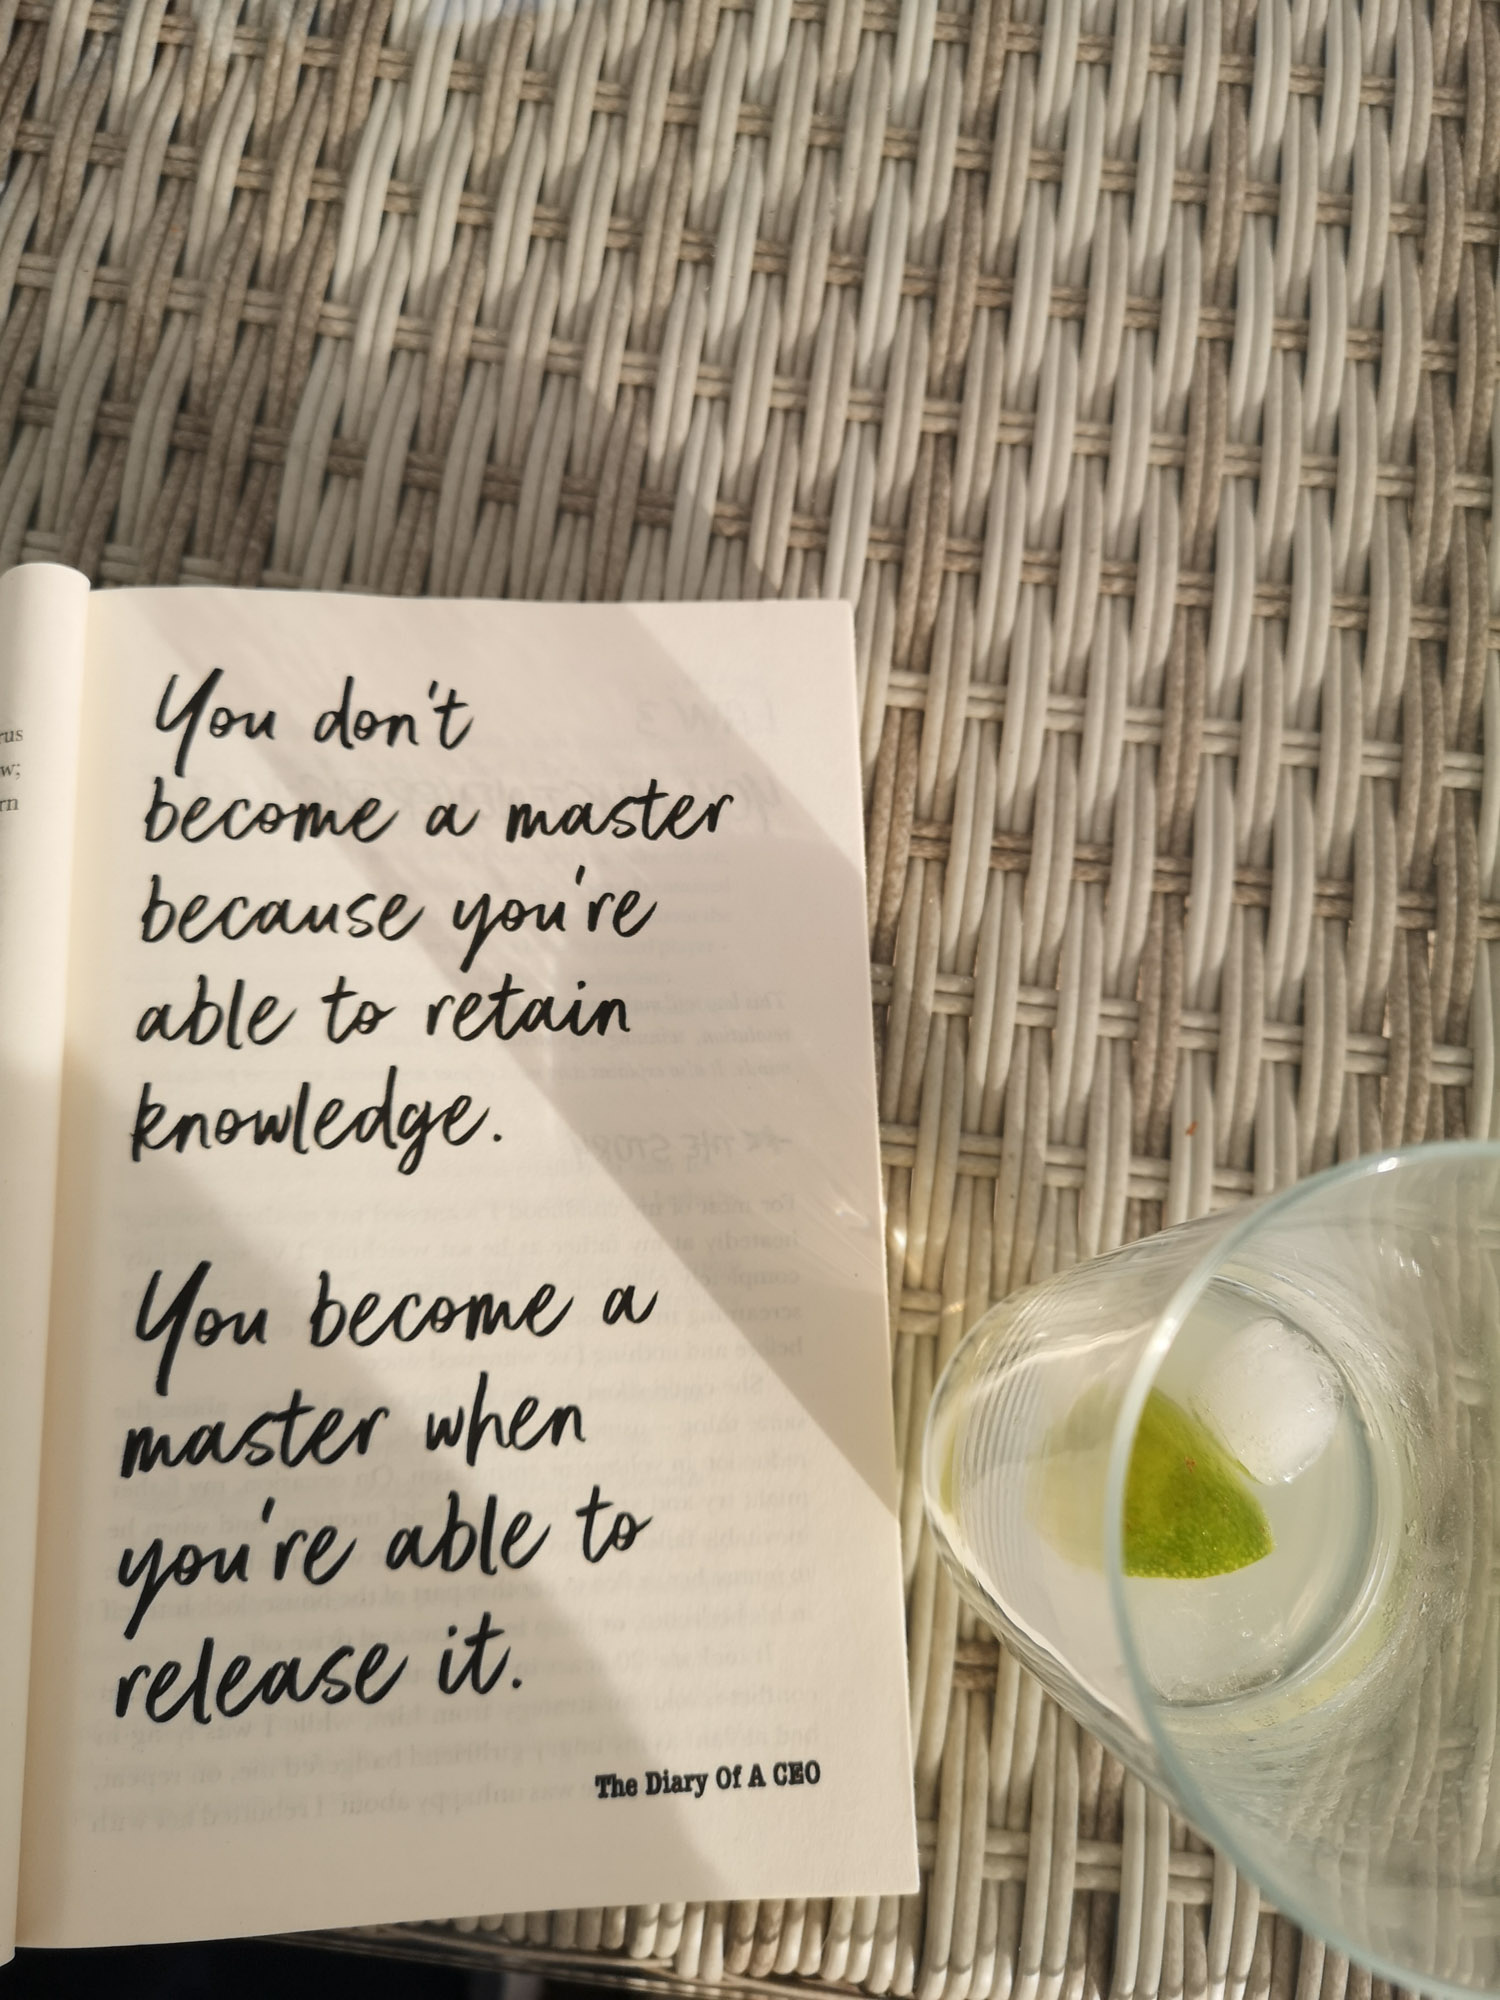 You don't
become a master
because you're
able to retain
knowledge.
You become a
master when
you're able to
release it.
The Diary Of A CEO